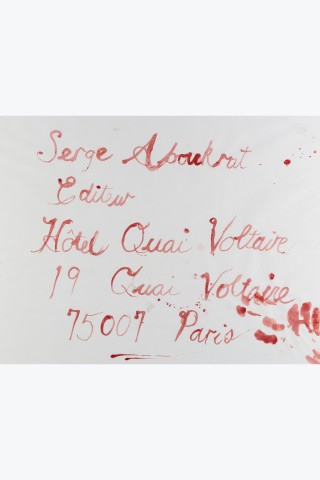 Serge Aboukrat.
Editeur
Hôtel Quai Voltaire
19 Quai Voltaire
75007 Paris